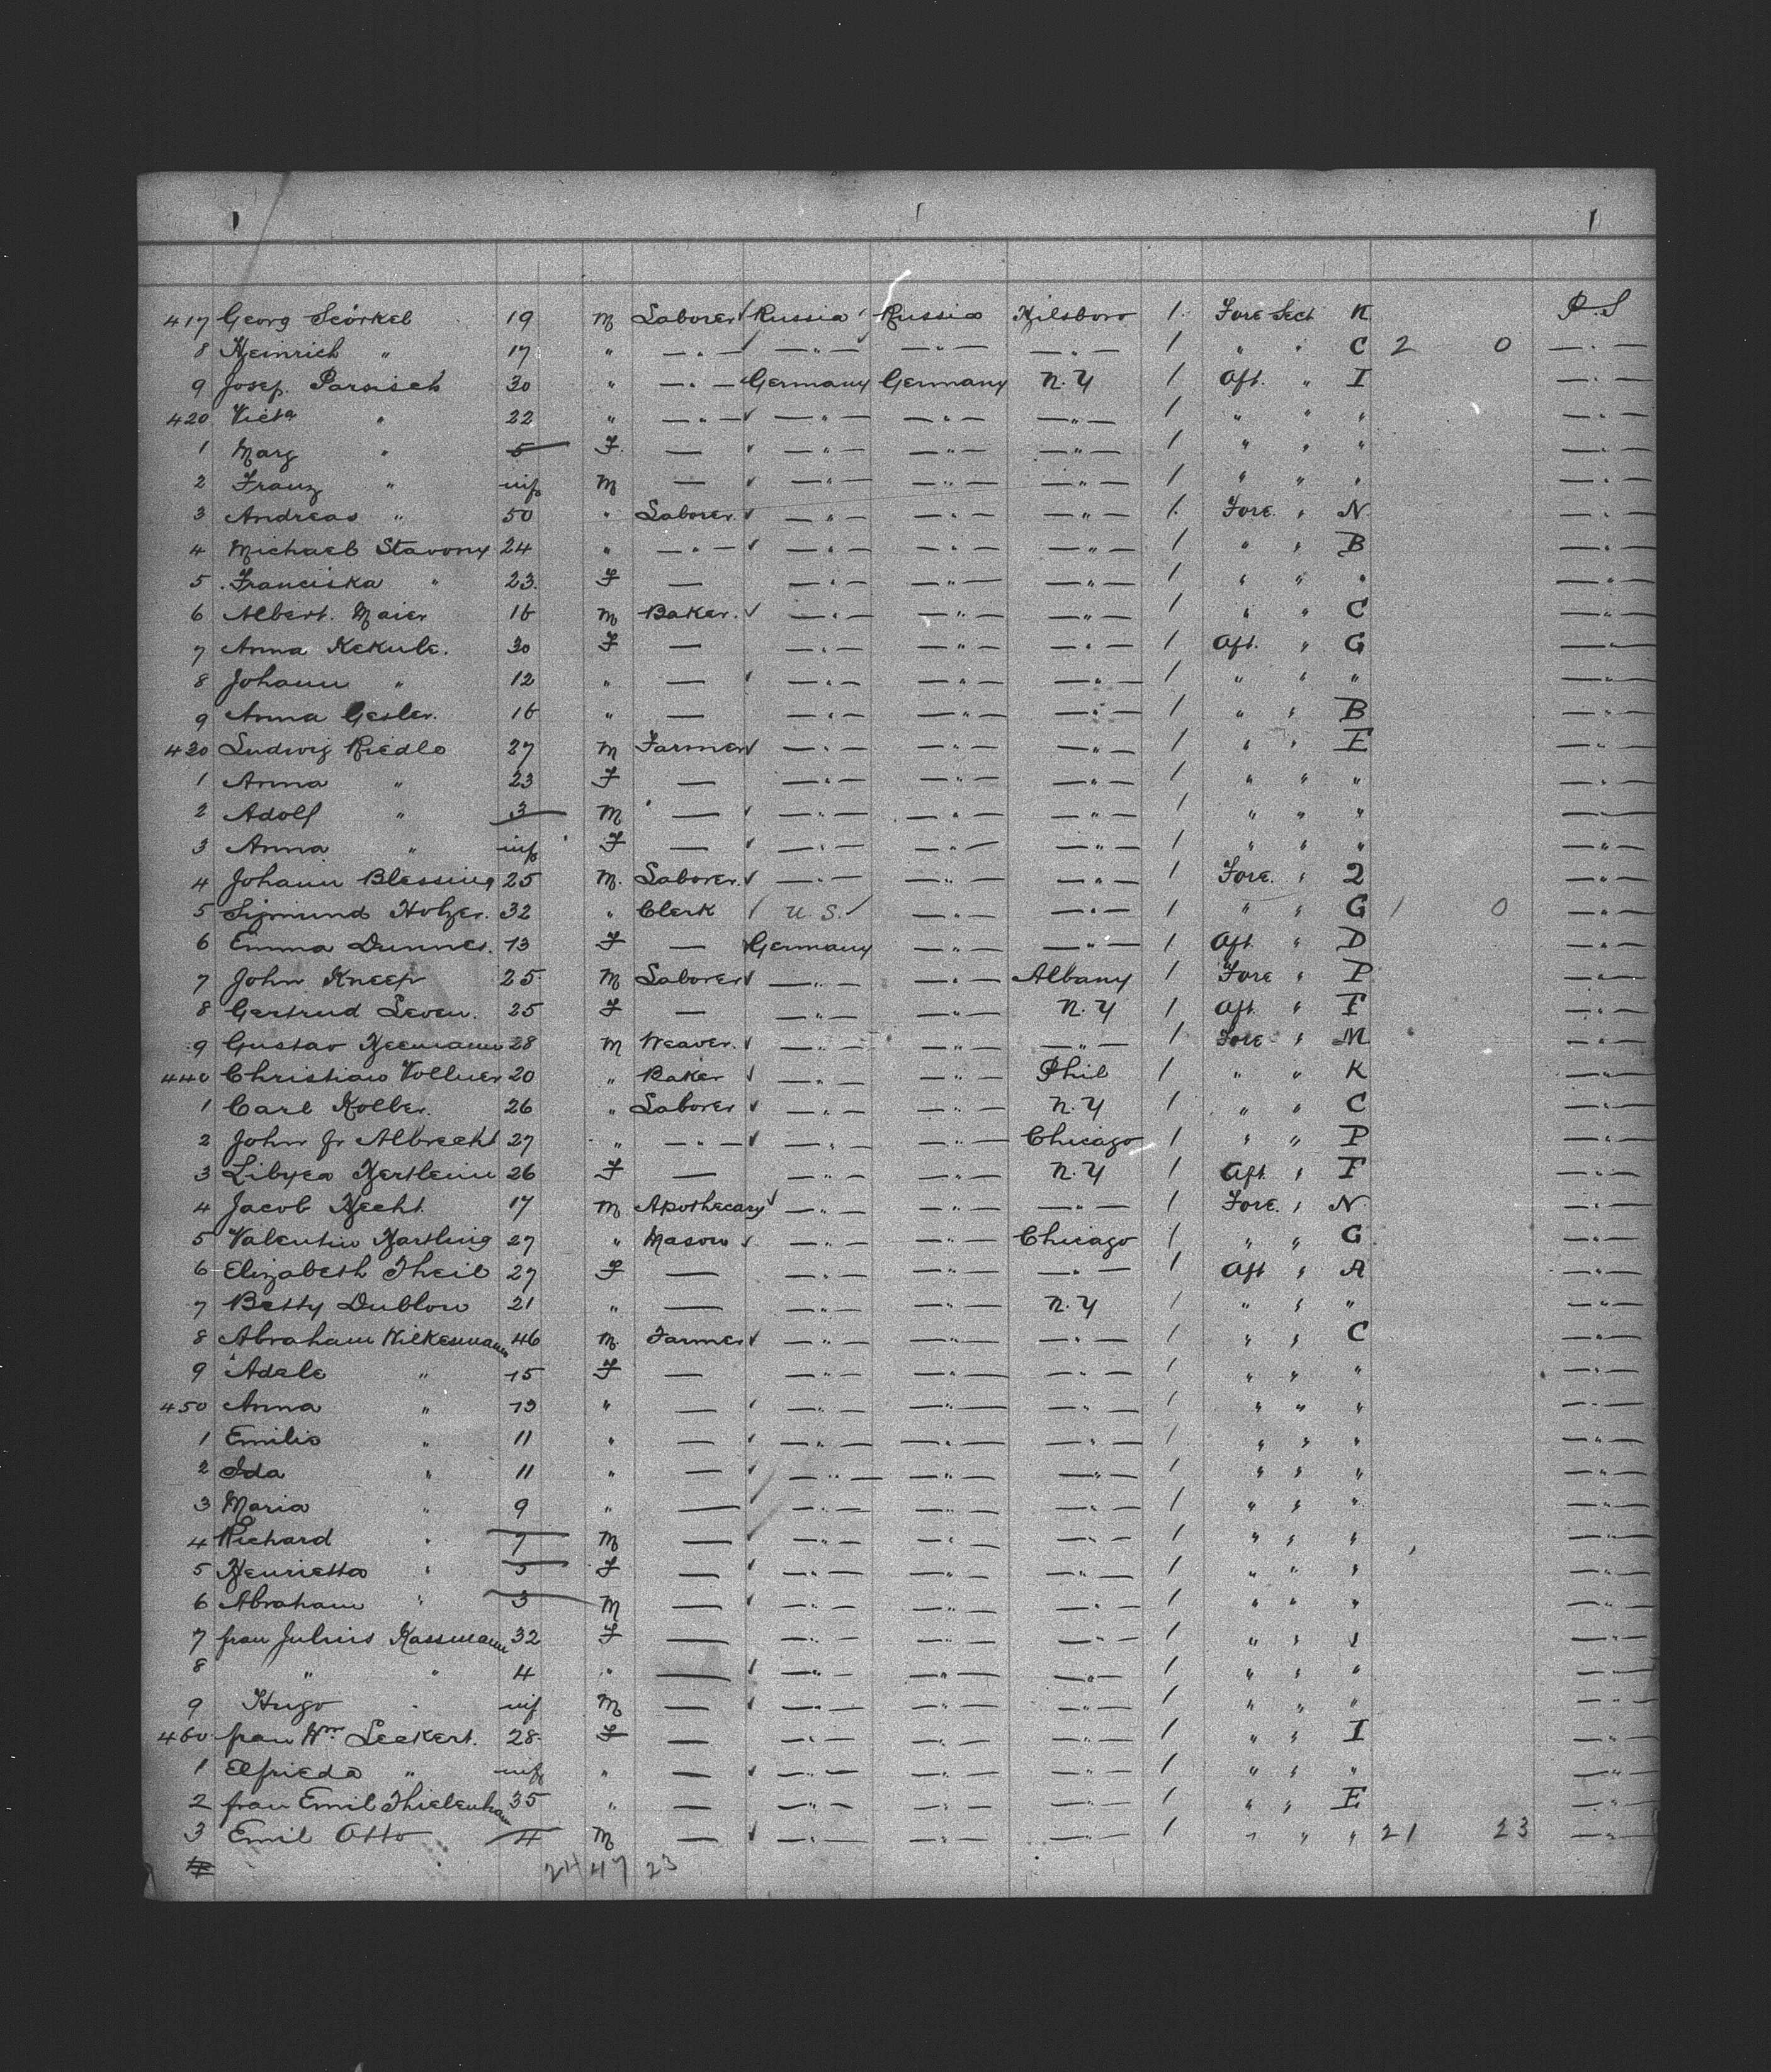 417 Georg Störkel 19 M Laborer Russia Russia Hilsboro 1 Fore Sect K P.S
8 Heinrich " 17 " —"— —"— —"— —"— 1 " " C 2 0 —"—
9 Josef. Parsisek 30 " —"— Germany Germany N.Y 1 Aft. " I —"—
420 Victa " 22 " —"— —"— —"— —"— 1 " " " —"—
1 Marg " 5 F. — —"— —"— —"— 1 " " " —"—
2 Franz " inf M — —"— —"— —"— 1 " " " —"—
3 Andreas " 50 " Laborer. —"— —"— —"— 1 Fore. " N —"—
4 Michael Stavony 24 " —"— —"— —"— —"— 1 " " B —"—
5 Franciska " 23. F — —"— —"— —"— 1 " " " —"—
6 Albert. Maier 16 M Baker. —"— —"— —"— 1 " " C —"—
7 Anna Kekule. 30 F — —"— —"— —"— 1 Aft. " G —"—
8 Johann " 12 " — —"— —"— —"— 1 " " " —"—
9 Anna Gesler. 16 " — —"— —"— —"— 1 " " B —"—
430 Ludwig Riedlo 27 M Farmer —"— —"— —"— 1 " " F —"—
1 Anna " 23 F — —"— —"— —"— 1 " " " —"—
2 Adolf " 3 M — —"— —"— —"— 1 " " " —"—
3 Anna " inf F — —"— —"— —"— 1 " " " —"—
4 Johann Blessing 25 M. Laborer. —"— —"— —"— 1 Fore. " 2 —"—
5 Sigmund Holzer. 32 " Clerk U.S. —"— —"— 1 " " G 1 0 —"—
6 Emma Dunnes. 13 F — Germany —"— —"— 1 Aft " D —"—
7 John Kneep 25 M Laborer —"— —"— Albany 1 Fore " P —"—
8 Gertrud Leven. 25 F — —"— —"— N.Y 1 Aft. " F —"—
9 Gustav Heemann 28 M Weaver. —"— —"— —"— 1 Fore " M —"—
440 Christian Vollmer 20 " Baker —"— —"— Phil 1 " " K —"—
1 Carl Koller. 26 " Laborer —"— —"— N.Y 1 " " C —"—
2 John Jr Albrecht 27 " —"— —"— —"— Chicago 1 " " P —"—
3 Libyea Hertlein 26 F — —"— —"— N.Y 1 Aft " F —"—
4 Jacob Hecht. 17 M Apothecary —"— —"— —"— 1 Fore. " N —"—
5 Valentin Hartling 27 " Mason —"— —"— Chicago 1 " " G —"—
6 Elizabeth Theil 27 F — —"— —"— —"— 1 Aft " A —"—
7 Betty Dublow 21 " — —"— —"— N.Y 1 " " " —"—
8 Abraham Wilkesmann 46 M. Farmer —"— —"— —"— 1 " " C —"—
9 Adele " 15 F — —"— —"— —"— 1 " " " —"—
450 Anna " 13 " — —"— —"— —"— 1 " " " —"—
1 Emilie " 11 " — —"— —"— —"— 1 " " " —"—
2 Ida " 11 " — —"— —"— —"— 1 " " " —"—
3 Maria " 9 " — —"— —"— —"— 1 " " " —"—
4 Richard " 7 M — —"— —"— —"— 1 " " " —"—
5 Henrietta " 5 F — —"— —"— —"— 1 " " " —"—
6 Abraham " 3 M — —"— —"— —"— 1 " " " —"—
7 frau Julius Kassmann 32 F — —"— —"— —"— 1 " " " —"—
8 " " 4 " — —"— —"— —"— 1 " " " —"—
9 Hugo " inf M — —"— —"— —"— 1 " " " —"—
460 frau Wm Leekert. 28 F — —"— —"— —"— 1 " " I —"—
1 Elfrieda " inf " — —"— —"— —"— 1 " " " —"—
2 frau Emil Thielenhaus 35 " — —"— —"— —"— 1 " " E —"—
3 Emil Otto 4 M — —"— —"— —"— 1 " " " 21 23 —"—
24 47 23